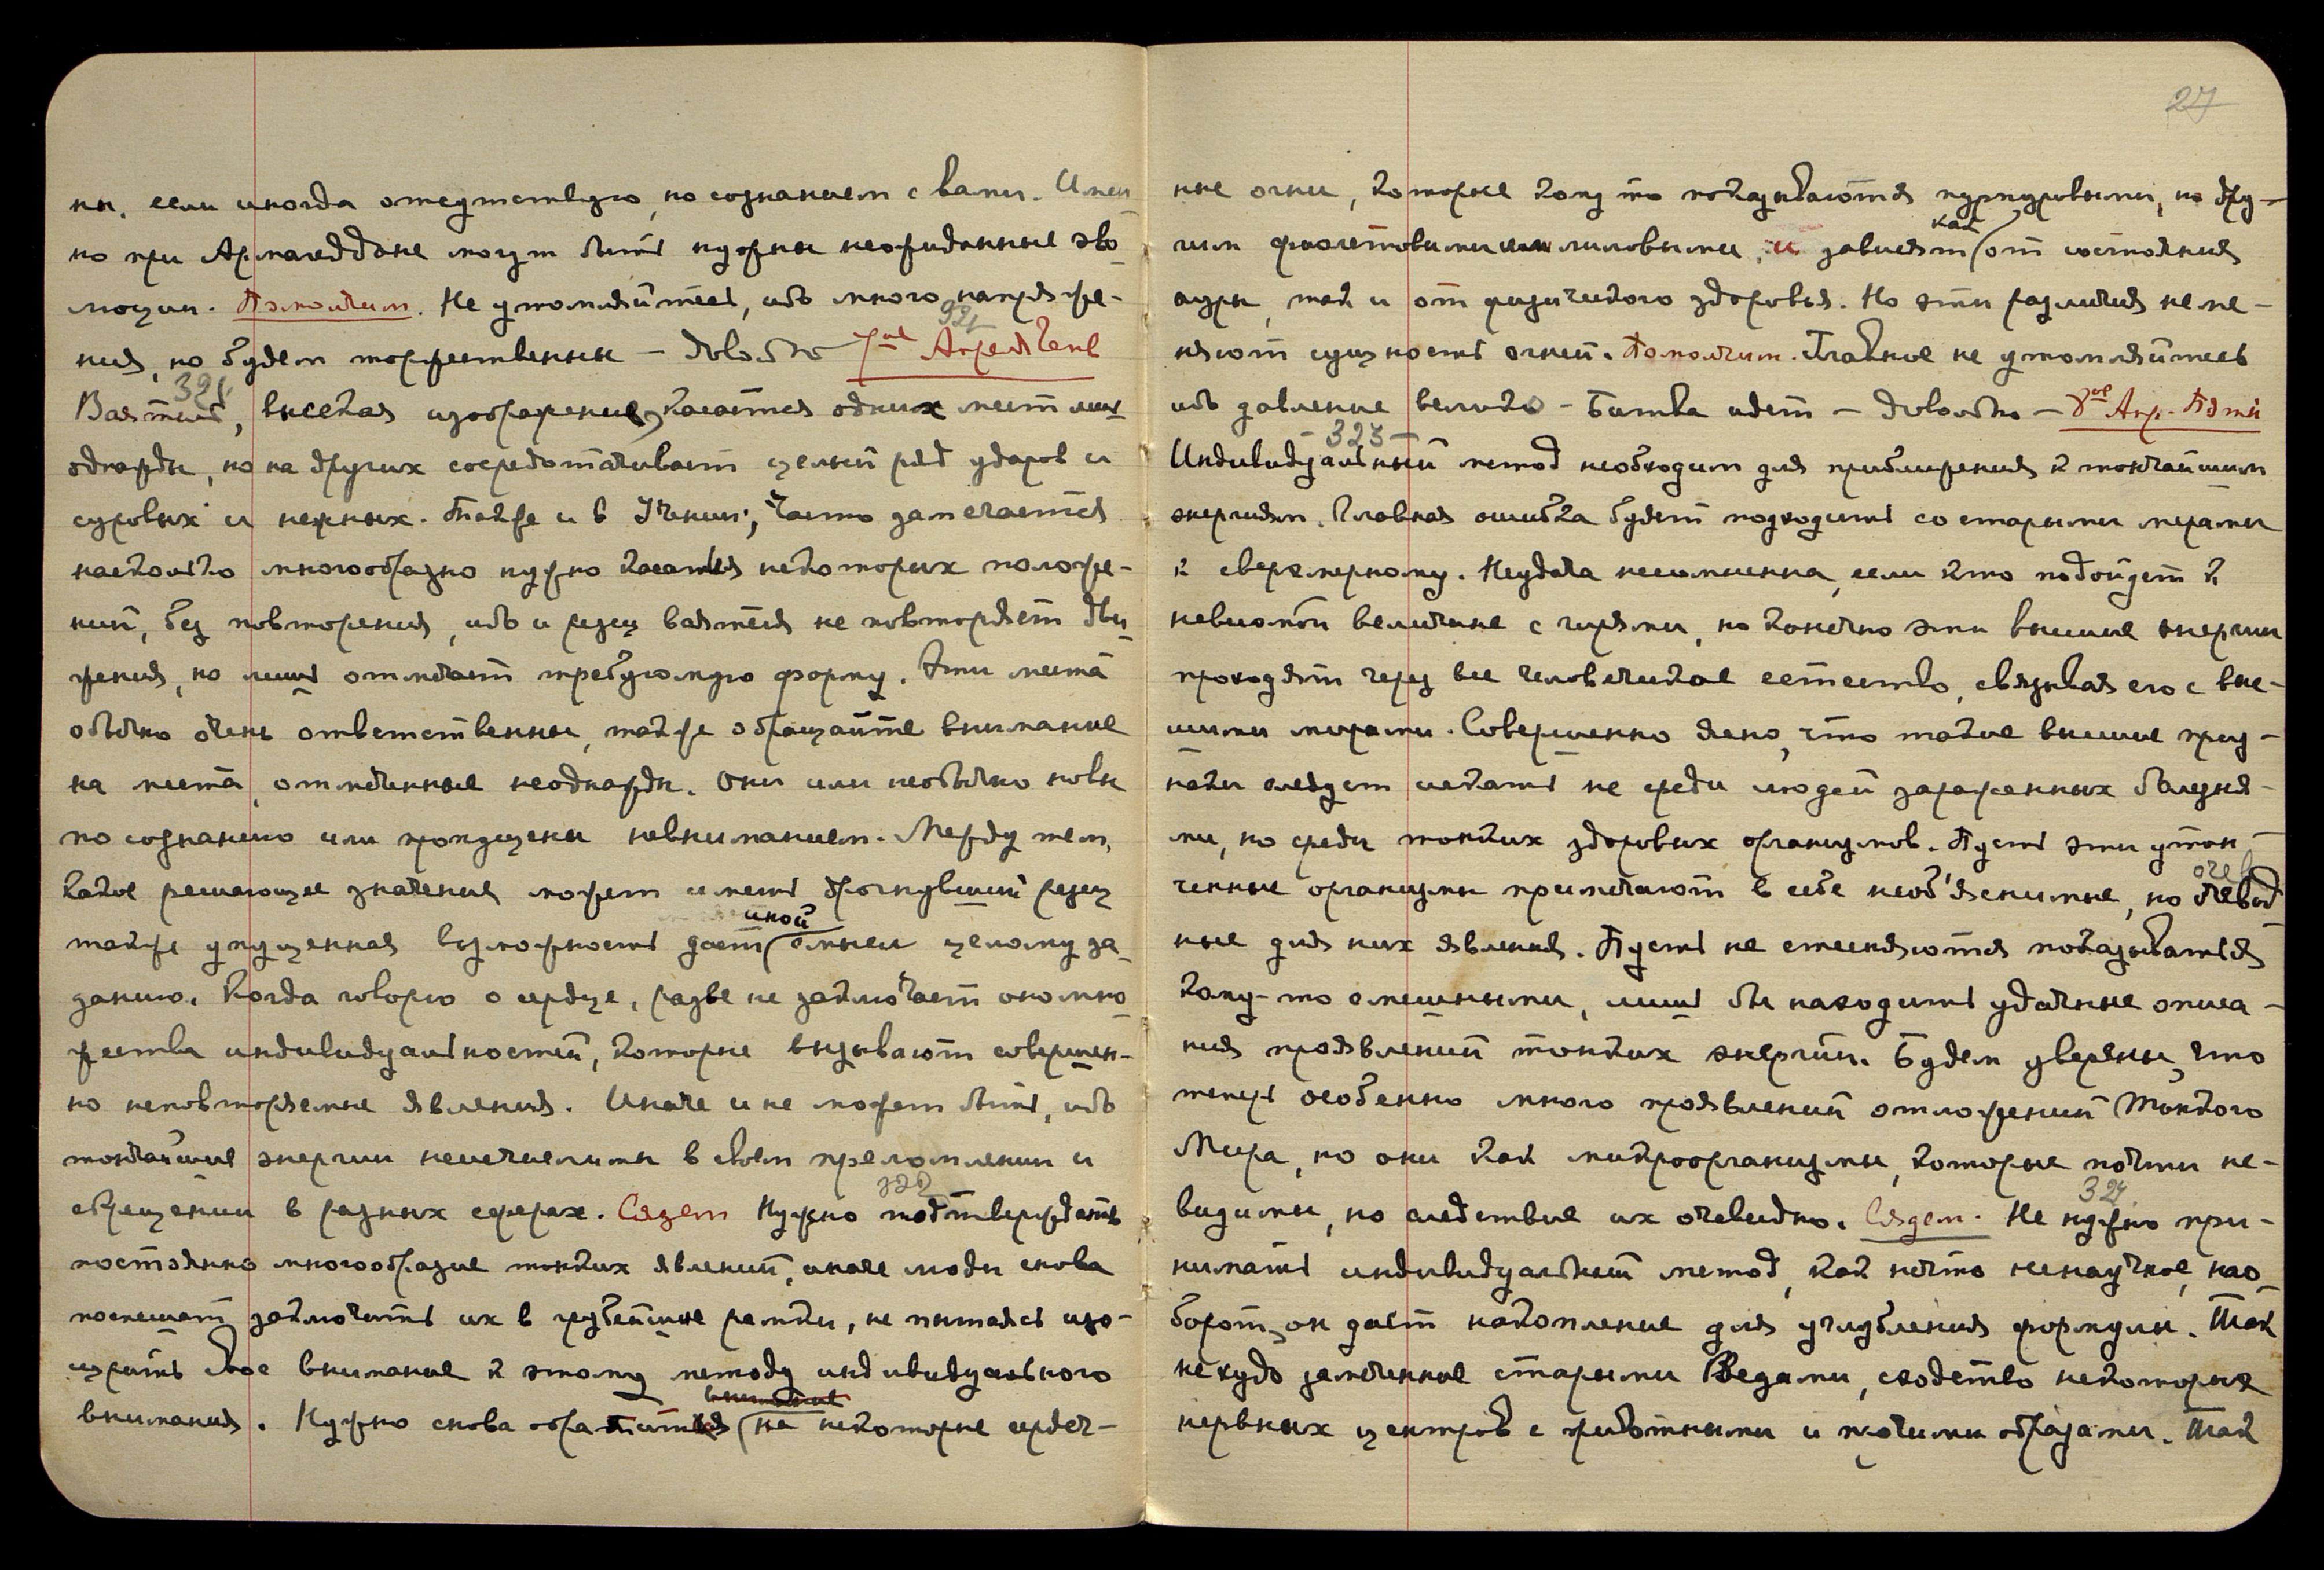 ны. если иногда отсутствую, но сознанием с вами. Имен
но при Армагеддоне могут быть нужны неожиданные эво
люции. Помолчим. Не утомляйтесь, ибо много напряже-
921
ния, но будем торжественны — Довольно 7ое Апр. Четв
321
Ваятель, высекая изображение, касается одних мест лиш
однажды, но на других сосредотачивает целый ряд ударов и
суровых и нежных. Также и в Учении; часто замечается
насколько многообразно нужно касаться некоторых положе-
ний, без повторения, ибо и резец ваятеля не повторяет дви
жения, но лишь отмечает требуемую форму. Эти места
обычно очень ответственны, также обращайте внимание
на места, отмеченные неоднажды. Они или необычно новы
по сознанию или пропущены невниманием. Между тем,
какое решающее значение может иметь дрогнувший резец
иной
также упущенная возможность дает смысл целому за
данию. Когда говорю о сердце, разве не заключает оно мно
жества индивидуальностей, которые вызывают совершен-
но неповторяемые явления. Иначе и не может быть, ибо
тончайшие энергии неисчислимы в своем преломлении и
322
скрещении в разных сферах. Сядем Нужно подтверждать
постоянно многообразие тонких явлений, иначе люди снова
поспешат заключить их в грубейшие рамки, не пытаясь изо-
щрить свое внимание к этому методу индивидуального
внимание
внимания. Нужно снова обратиться на некоторые сердеч-
27
ные огни, которые кому то показываются пурпуровыми, но дру-
как
гим фиолетовыми или лиловыми, и зависят от состояния
ауры, так и от физического здоровья. Но эти различия не ме-
няют сущность огней. Помолчим. Главное не утомляйтесь
ибо давление велико — Битва идет — Довольно — 8ое Апр. Пятн
- 323 -
Индивидуальный метод необходим для приближения к тончайшим
энергиям. Главная ошибка будет подходить со старыми мерами
к сверхмерному. Неудача несомненна, если кто подойдет к
невесомой величине с гирями, но конечно эти высшие энергии
проходят через все человеческое естество, связывая его с выс-
шими мирами. Совершенно ясно, что такие высшие приз-
наки следует искать не среди людей зараженных болезня-
ми, но среди тонких здоровых организмов. Пусть эти утон
очев
ченные организмы примечают в себе необ'яснимые, но очевид
ные для них явления. Пусть не стесняются показываться
кому-то смешными, лишь бы находить удачные описа-
ния проявлений тонких энергий. Будем уверены, что
теперь особенно много проявлений отложений Тонкого
Мира, но они как микроорганизмы, которые почти не-
324
видимы, но следствие их очевидно. Сядем. Не нужно при-
нимать индивидуальный метод, как нечто ненаучное, нао
борот, он дает накопление для углубления формулы. Так
не худо замеченное старыми Ведами, сходство некоторых
нервных центров с животными и прочими образами. Так